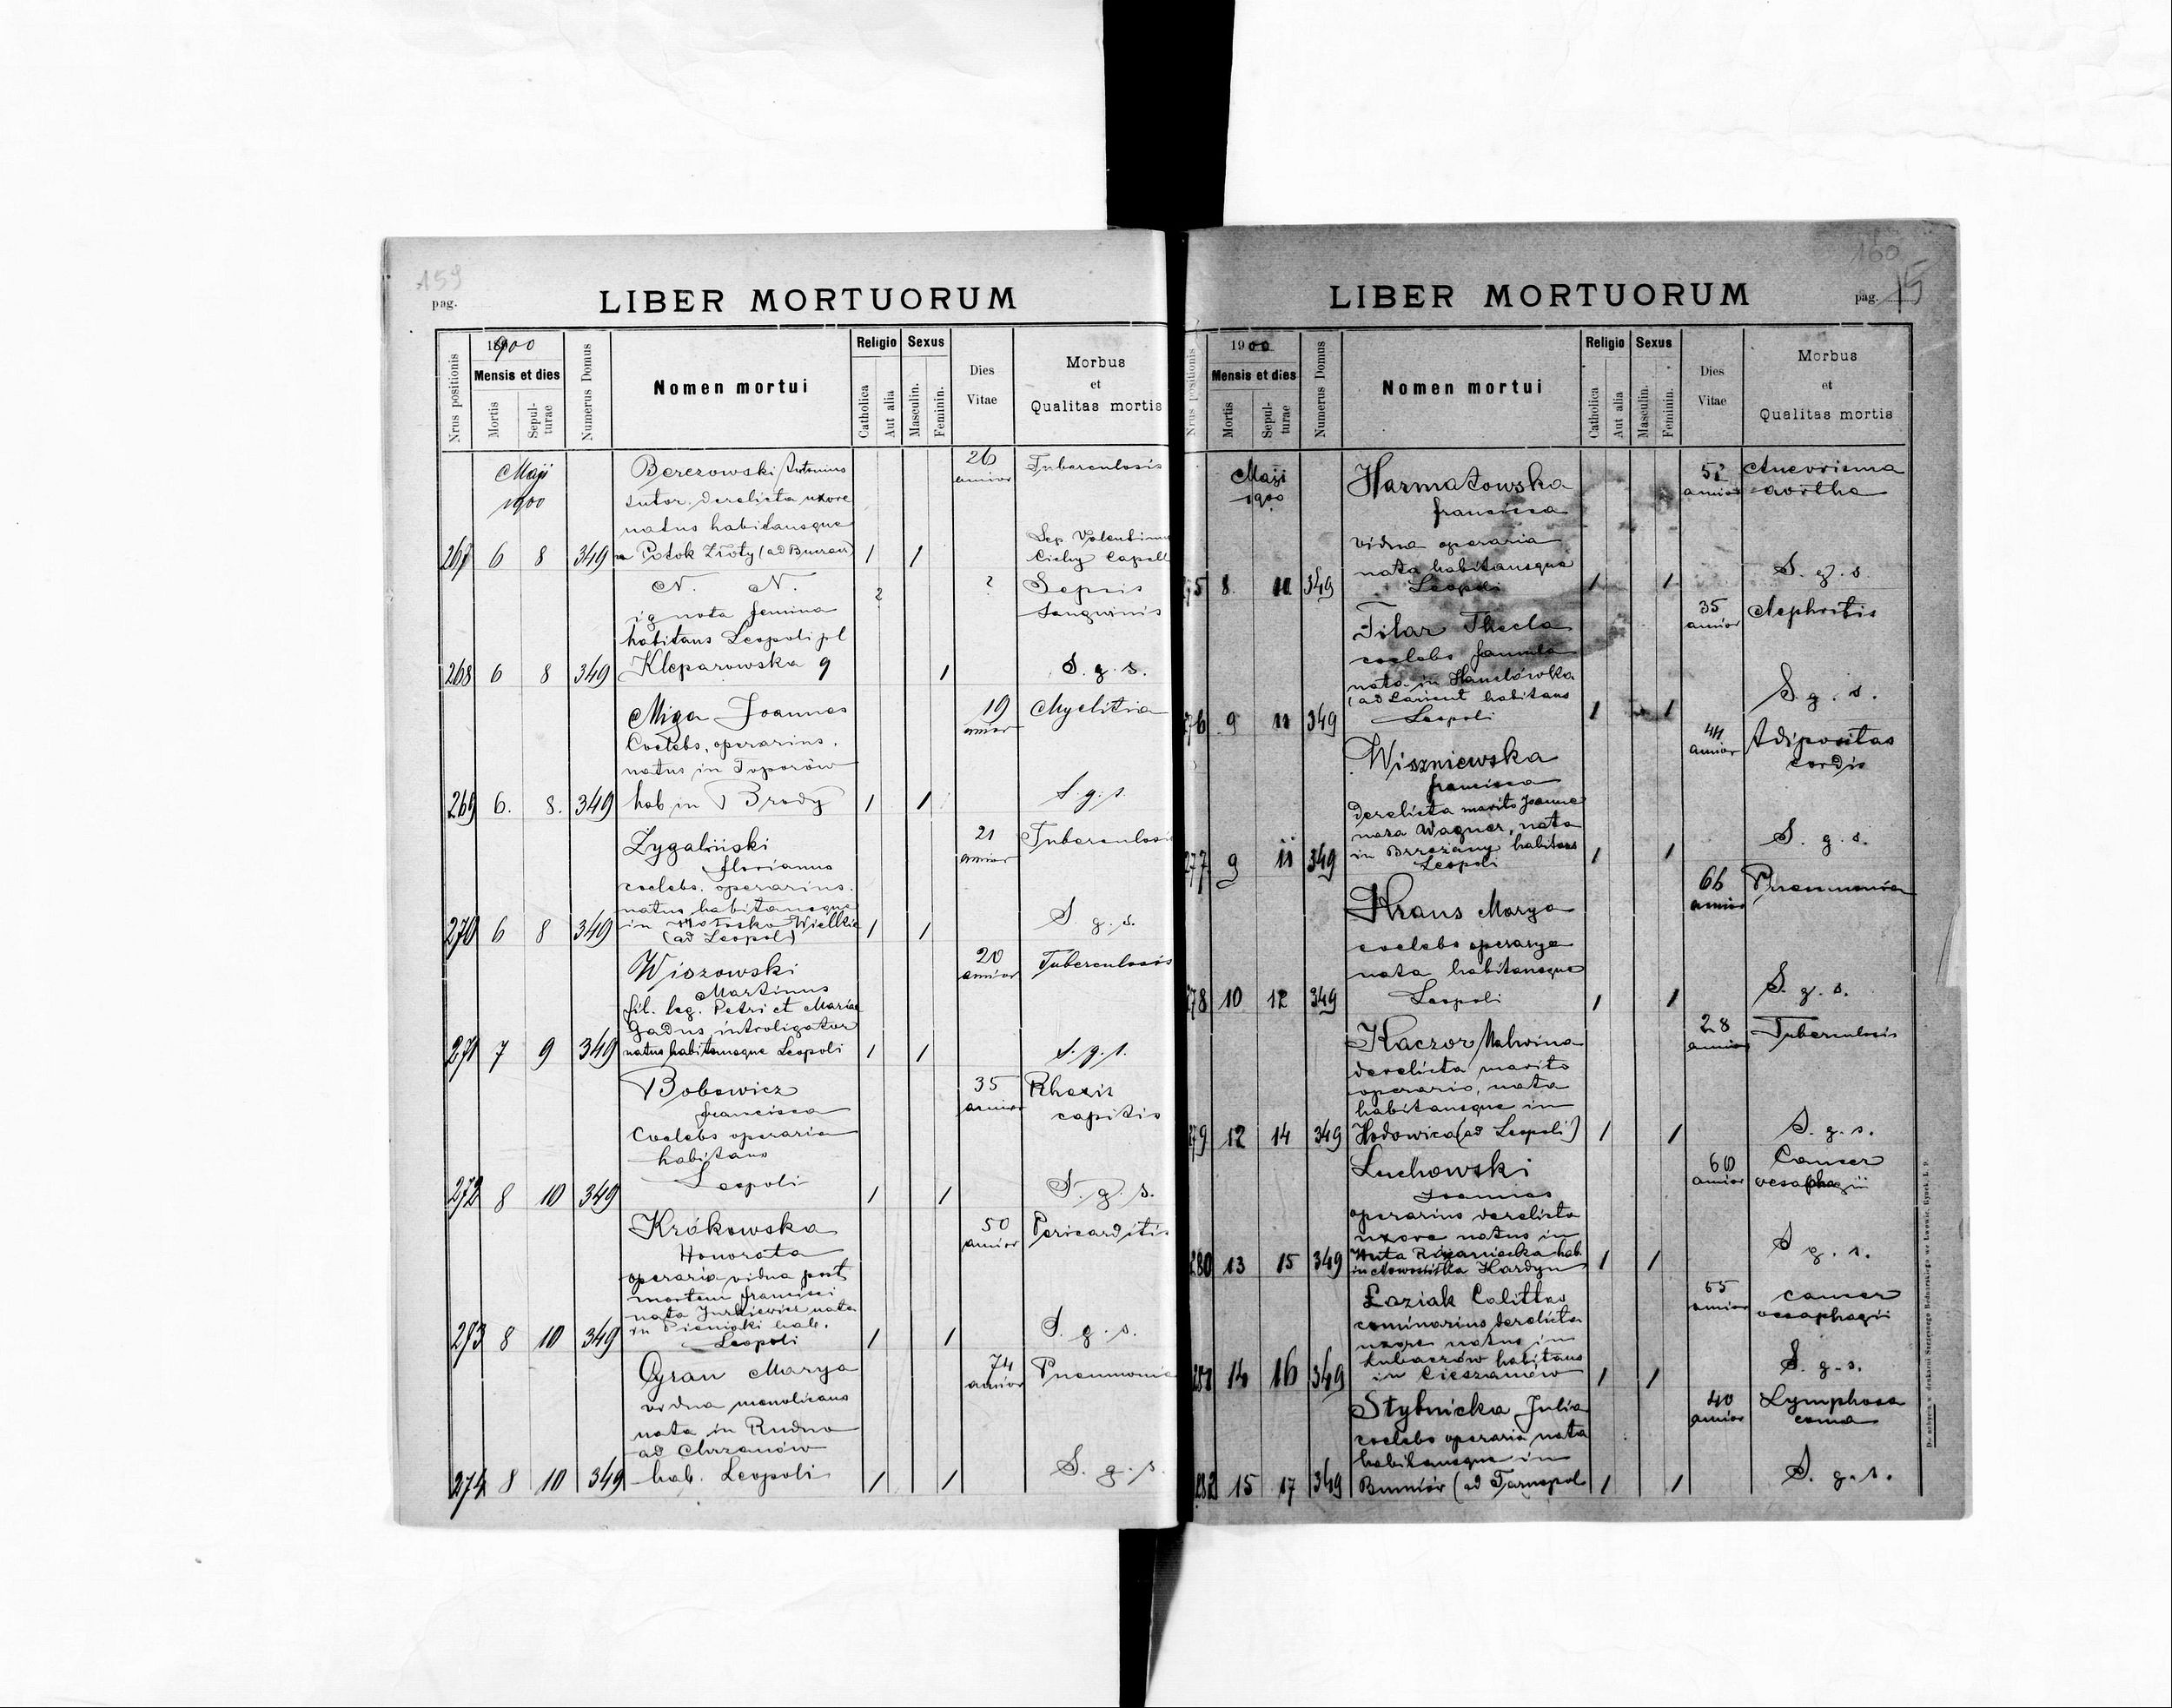 159
pag.
LIBER MORTUORUM
Nrus positionis
1900
Mensis et dies
Mortis
Sepul-
turae
Numerus Domus
Nomen mortui
Religio
Catholica
Aut alia
Sexus
Masculin.
Feminin.
Dies
Vitae
Morbus
et
Qualitas mortis
Maji
1900
Berezowski Antonius
sutor. derelicta uxore
natus habitansque
267 6 8 349 Potok Złoty (ad Buczacz) 1 1
26
annor
Tuberculosis
Sep. Valentinus
Cichy Capell
N. N.
ignota femina
habitans Leopoli pl
268 6 8 349 Kleparowska 9 ? 1
?
Sepsis
sanguinis
S. g. s.
Miga Joannes
Coelebs, operarius,
natus in Toporów
269 6. 8. 349 hab in Brody 1 1
19
annor
Myelitis
S. g. s.
Zygaliński
Florianus
coelebs. operarius.
natus habitansque
in Hołosko Wielkie
270 6 8 349 (ad Leopol) 1 1
21
annor
Tuberculosis
S. g. s.
Wiszowski
Martinus
fil. leg. Petri et Mariae
Gadus, introligator
271 7 9 349 natus habitansque Leopoli 1 1
20
annor
Tuberculosis
S. g. s.
Bobowicz
Francisca
Coelebs operaria
habitans
272 8 10 349 Leopoli 1 1
35
annor
Rhexis
capitis
S. g. s.
Krókowska
Honorata
operaria vidua post
mortem Francisci
nata Jurkiewicz nata
in Pieniaki hab.
273 8 10 349 Leopoli 1 1
50
annor
Pericarditis
S. g. s.
Gran Marya
vidua mendicans
nata in Rudno
ad Chrzanów
274 8 10 349 hab. Leopoli 1 1
74
annor
Pneumonia
S. g. s.
160
pag. 15
LIBER MORTUORUM
Nrus positionis
1900
Mensis et dies
Mortis
Sepul-
turae
Numerus Domus
Nomen mortui
Religio
Catholica
Aut alia
Sexus
Masculin.
Feminin.
Dies
Vitae
Morbus
et
Qualitas mortis
Maji
1900
Harmatowska
Francisca
vidua operaria
nata habitansque
75 8. 10 349 Leopoli 1 1
52
annor
Anevrisma
aortha
S. g. s.
Tilar Thecla
coelebs famula
nata in Handlówka
(ad Łańcut habitans
76 9 11 349 Leopoli 1 1
35
annor
Nephritis
S. g. s.
Wiszniewska
Francisca
derelicta marito Joanne
nata Wagner, nata
in Brzeżany habitans
77 9 11 349 Leopoli 1 1
44
annor
Adipositas
cordis
S. g. s.
Kraus Marya
coelebs operarya
nata habitansque
78 10 12 349 Leopoli 1 1
66
annor
Pneumonia
S. g. s.
Kaczor Malwina
derelicta marito
operario, nata
habitansque in
79 12 14 349 Hodowica (ad Leopoli) 1 1
28
annor
Tuberculosis
S. g. s.
Luchowski
Joannes
operarius derelicta
uxore natus in
Huta Różaniecka hab.
280 13 15 349 in Hardyn 1 1
60
annor
Cancer
oesophagii
S g. s.
Łaziak Calittus
derelicta
uxore natus in
Lubaczów habitans
281 14 16 349 in Cieszanów 1 1
55
annor
cancer
oesophagii
S. g. s.
Stybnicka Julia
coelebs operaria nata
habitansque in
282 15 17 349 (ad Tarnopol 1 1
40
annor
Lymphosa
coma
S. g. s.
Do nabycia w drukarni Szczęsnego Bednarskiego we Lwowie, Rynek, l. 9.